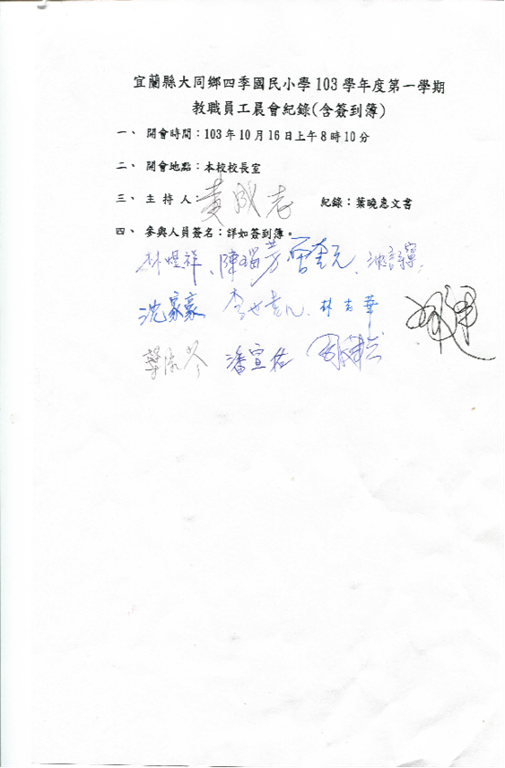 宜蘭縣大同鄉四季國民小學103學年度第一學期
教職員工晨會紀錄(含簽到簿)
一、 開會時間：103年10月16日上午8時10分
二、 開會地點：本校校長室
三、 主持人： 紀錄：葉曉惠文書
四、 參與人員簽名：詳如簽到簿。
林煜祥、陳瑞芳
沈家豪 林吉華
潘宣佑